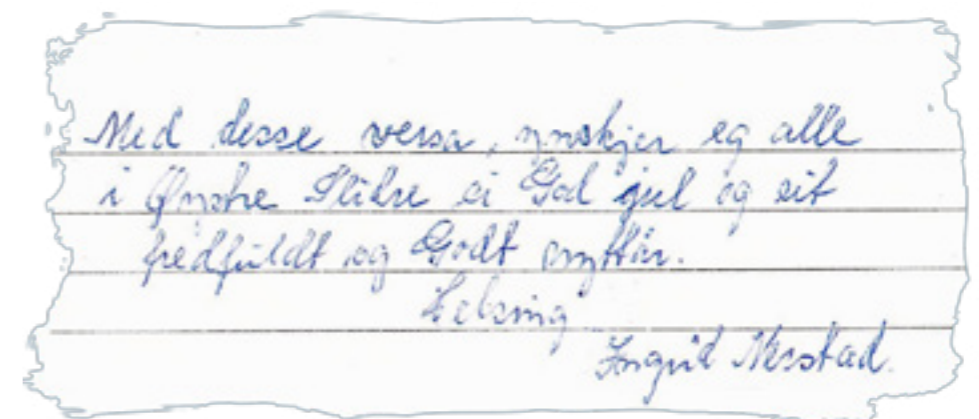 Med desse versa, ynskjer eg alle
i Øystre Slidre ei God jul og eit
fredfuldt og Godt nyttår.
Helsing
Ingrid Nerstad.